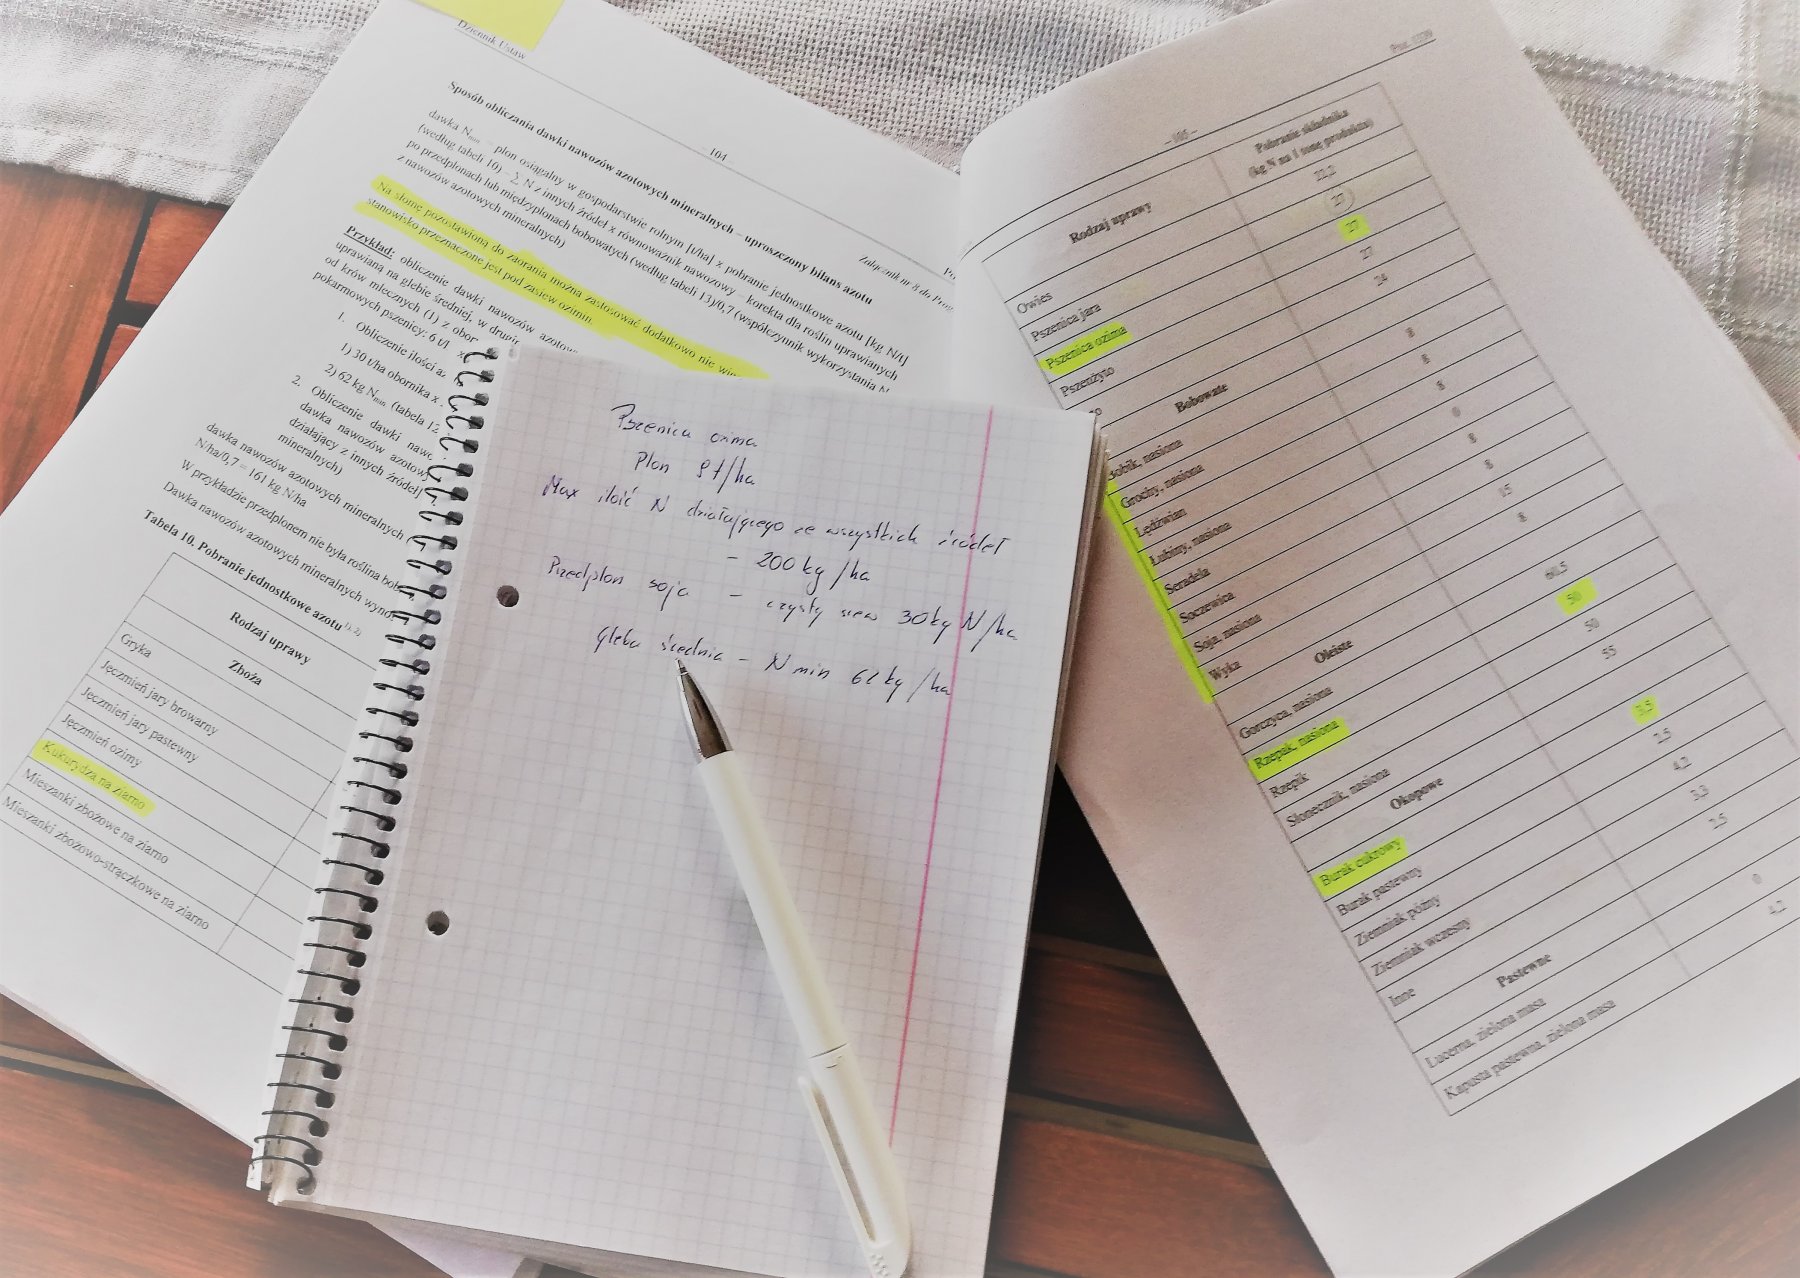 Dziennik Ustaw
– 104 –
Załącznik nr 8 do
Sposób obliczania dawki nawozów azotowych mineralnych – uproszczony bilans azotu
dawka Nmin plon osiągalny w gospodarstwie rolnym [t/ha] x pobranie jednostkowe azotu [kg N/t]
(według tabeli 10) – ∑ N z innych źródeł x równoważnik nawozowy – korekta dla roślin uprawianych
po przedplonach lub międzyplonach bobowatych (według tabeli 13)/0,7 (współczynnik wykorzystania N
z nawozów azotowych mineralnych)
Na słomę pozostawioną do zaorania można zastosować dodatkowo nie
stanowisko przeznaczone jest pod zasiew ozimin.
Przykład: obliczenie dawki nawozów
uprawianą na glebie średniej, w
od krów mlecznych (1) z
pokarmowych pszenicy: 6
1. Obliczenie ilości
1) 30 t/ha obornika x
2) 62 kg Nmin (tabela 12
2. Obliczenie dawki
dawka nawozów
działający z innych źródeł
mineralnych)
dawka nawozów azotowych mineralnych
N/ha/0,7 = 161 kg N/ha
W przykładzie przedplonem nie była roślina
Dawka nawozów azotowych mineralnych
Tabela 10. Pobranie jednostkowe azotu (1, 2)
Rodzaj uprawy
Zboża
Gryka
Jęczmień jary browarny
Jęczmień jary pastewny
Jęczmień ozimy
Kukurydza na ziarno
Mieszanki zbożowe na ziarno
Mieszanki zbożowo-strączkowe na ziarno
Pszenica ozima
Plon 9 t/ha
Max ilość N działającego ze wszystkich źródeł
– 200 kg/ha
Przedplon soja – czysty siew 30 kg N/ha
Gleba średnia – N min 62 kg/ha
– 105 –
Rodzaj uprawy Pobranie składnika
(kg N na 1 tonę produktu)
Owies
Pszenica jara
Pszenica ozima 27
Pszenżyto 27
24
Bobowate
nasiona 8
Grochy, nasiona 8
Lędźwian 8
Łubiny, nasiona
Seradela 8
Soczewica 8
Soja, nasiona 15
Wyka 8
Oleiste
Gorczyca, nasiona 60,5
Rzepak, nasiona 50
Rzepik 50
Słonecznik, nasiona 55
Okopowe
Burak cukrowy 3,5
Burak pastewny 2,5
Ziemniak późny 4,2
Ziemniak wczesny 3,3
Inne 2,5
Pastewne
Lucerna, zielona masa 0
Kapusta pastewna, zielona masa 4,2